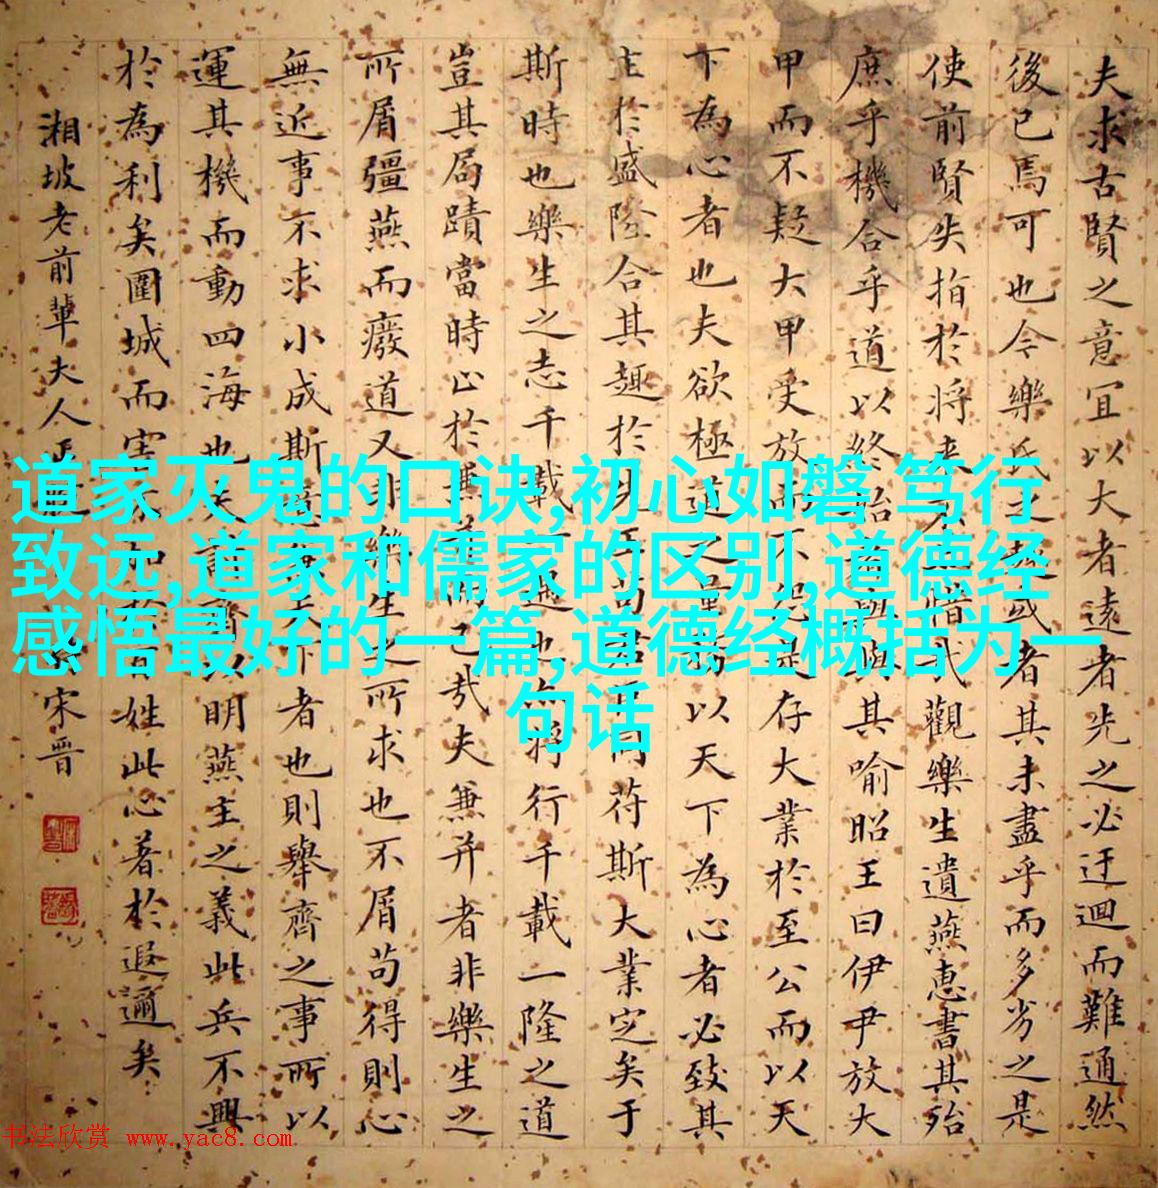 夫求古賢之意宜以大者遠者先之必迂迴而難通然
後已焉可也今樂氏之趣或者其未盡乎而多劣之是
使前賢失指於將来不惜哉觀樂生遺燕惠書其殆
庶乎機合乎道以終始者與其喻昭王曰伊尹放大
甲而不疑大甲受放而不怨是存大業於至公而以天
下為心者也夫欲極道之量務以天下為心者必致其
主於盛隆合其趣於先王苟君臣同苻斯大業定矣于
斯時也樂生之志千載一遇也亦將行千載一隆之道
豈其局蹟當時止於兼并而已哉夫兼并者非樂生之
所屑彊燕而廢道又非樂生之所求也不屑苟得則心
無近事不求小成斯意兼天下者也則舉齊之事所以
運其機而動四海也夫討齊以明燕主之義此兵不興
於為利矣圍城而害不加於百姓此心著於遐邇矣
湘坡老前輩夫人正
宋晋
道家灭鬼的口诀,初心如磐 笃行
致远,道家和儒家的区别,道德经
感悟最好的一篇,道德经概括为一
句话
书法欣赏 www.yac8.com